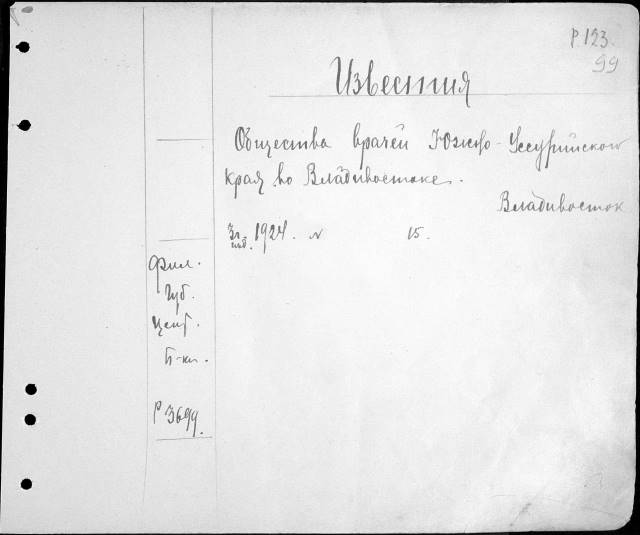 Р 123.
99
Известия
Общества врачей Южно-Уссурийского
края во Владивостоке.
Владивосток
1924. N 15.
Фил.
Губ.
Цент.
Б-ки.
Р 3699.